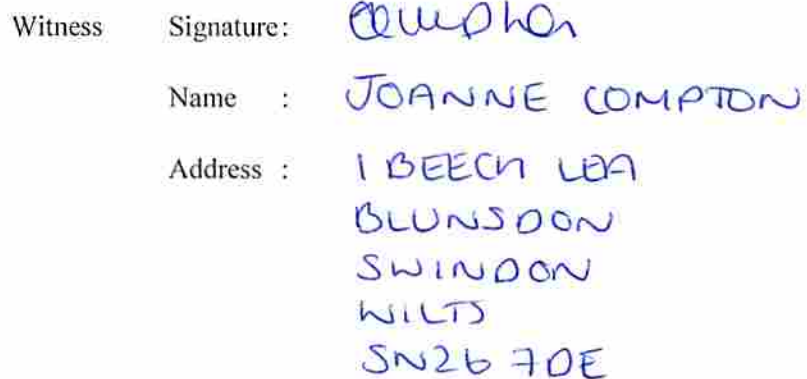 Witness Signature:
Name : JOANNE COMPTON
Address : 1 BEECH LEA
BLUNSDON
SWINDON
WILTS
SN26 7DE